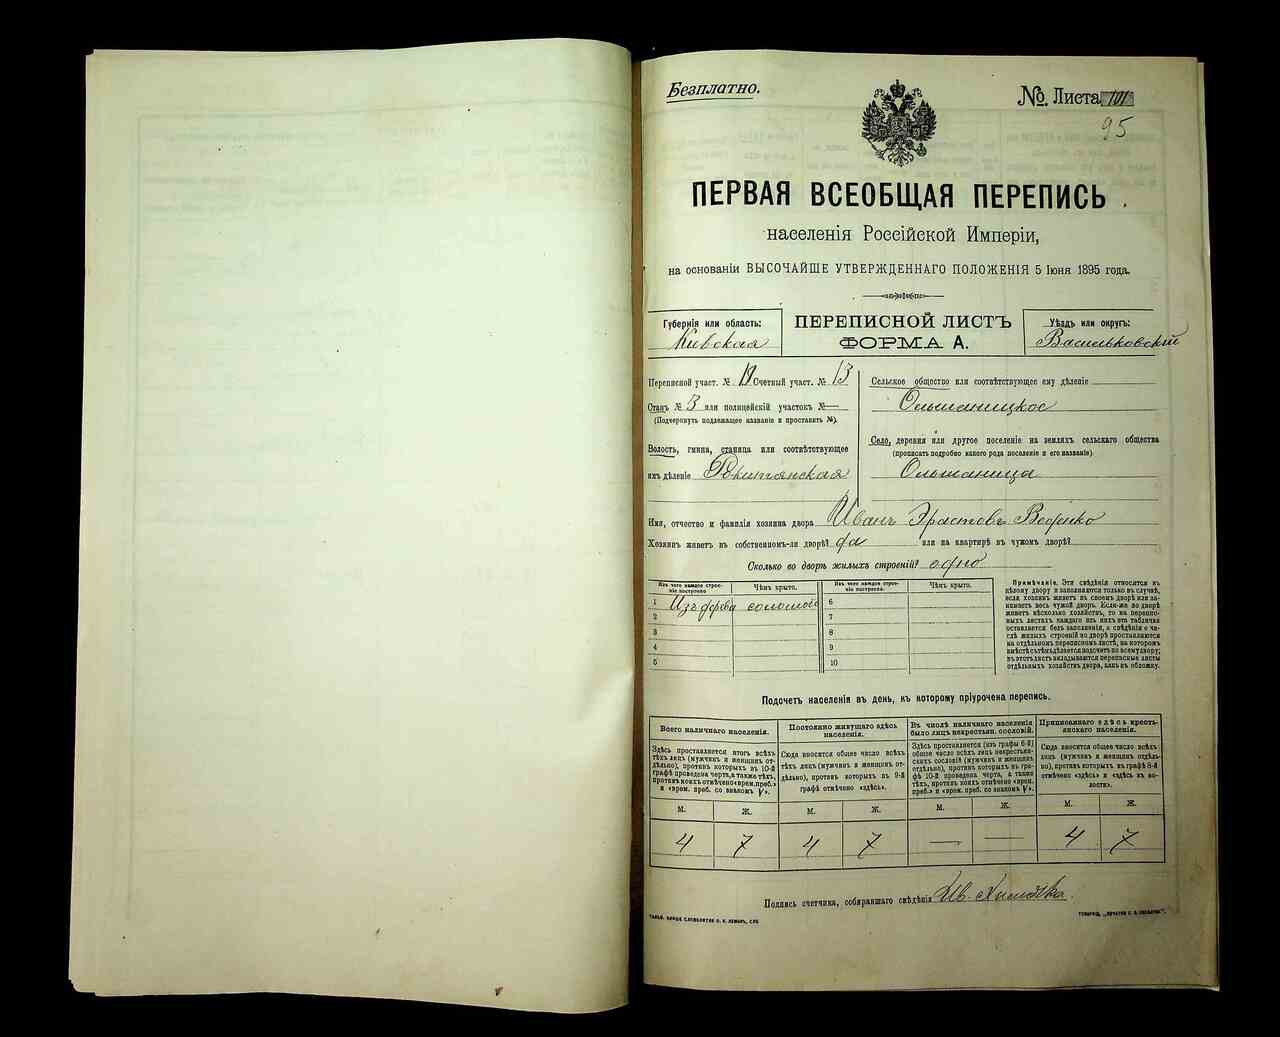 Безплатно.
№. Листа 101
95
ПЕРВАЯ ВСЕОБЩАЯ ПЕРЕПИСЬ
населенія Россійской Имперіи,
на основаніи ВЫСОЧАЙШЕ УТВЕРЖДЕННАГО ПОЛОЖЕНІЯ 5 Іюня 1895 года.
Губернія или область:
Кивская
ПЕРЕПИСНОЙ ЛИСТЪ
ФОРМА А.
Уѣздъ или округъ:
Васильковскій
Переписной участ. № Счетный участ. № 13
Станъ № 3 или полицейскій участокъ №—
(Подчеркнуть подлежащее названіе и проставить №).
Волость, гмина, станица или соотвѣтствующее
имъ дѣленіе Рокитянская
Сельское общество или соотвѣтствующее ему дѣленіе
Ольшаницкое
Село, деревня или другое поселеніе на земляхъ сельскаго общества
(прописать подробно какого рода поселеніе и его названіе)
Ольшаница
Имя, отчество и фамилія хозяина двора Иванъ Эрастовъ
Хозяинъ живетъ въ собственномъ-ли дворѣ? да или на квартирѣ въ чужомъ дворѣ?
Сколько во дворѣ жилыхъ строеній? одно
Изъ чего каждое строеніе построено
Чѣмъ крыто.
Изъ чего каждое строеніе построено
Чѣмъ крыто.
1 Изъ дерева соломою
2
3
4
5
6
7
8
9
10
Примѣчаніе. Эти свѣдѣнія относятся къ
цѣлому двору и заполняются только въ случаѣ,
если хозяинъ живетъ въ своемъ дворѣ или за-
нимаетъ весь чужой дворъ. Если-же во дворѣ
живетъ нѣсколько хозяйствъ, то на перепис-
ныхъ листахъ каждаго изъ нихъ эта табличка
оставляется безъ заполненія, а свѣдѣнія о чи-
слѣ жилыхъ строеній во дворѣ проставляются
на отдѣльномъ переписномъ листѣ, на которомъ
вмѣстѣ съ тѣмъ дѣлается подсчетъ по всему двору;
въ этотъ листъ вкладываются переписные листы
отдѣльныхъ хозяйствъ двора, какъ въ обложку.
Подсчетъ населенія въ день, къ которому пріурочена перепись.
Всего наличнаго населенія.
Здѣсь проставляется итогъ всѣхъ
тѣхъ лицъ (мужчинъ и женщинъ от-
дѣльно), противъ которыхъ въ 10-й
графѣ проведена черта, а также тѣхъ,
противъ коихъ отмѣчено «врем. преб.»
и «врем. преб. со знакомъ V».
Постоянно живущаго здѣсь
населенія.
Сюда вносится общее число всѣхъ
тѣхъ лицъ (мужчинъ и женщинъ от-
дѣльно), противъ которыхъ въ 9-й
графѣ отмѣчено «здѣсь».
Въ числѣ наличнаго населенія
было лицъ некрестьян. сословій.
Здѣсь проставляется (изъ графы 6-й)
общее число всѣхъ лицъ некрестьян-
скихъ сословій (мужчинъ и женщинъ
отдѣльно), противъ которыхъ въ гра-
фѣ 10-й проведена черта, а также
тѣхъ, противъ коихъ отмѣчено «врем.
преб.» и «врем. преб. со знакомъ V».
Приписаннаго здѣсь кресть-
янскаго населенія.
Сюда вносится общее число всѣхъ
лицъ (мужчинъ и женщинъ отдѣль-
но), противъ которыхъ въ графѣ 8-й
отмѣчено «здѣсь» и «здѣсь въ во-
лости».
М. Ж. М. Ж. М. Ж. М. Ж.
4 7 4 7 — — 4 7
Подпись счетчика, собиравшаго свѣдѣнія Ив.